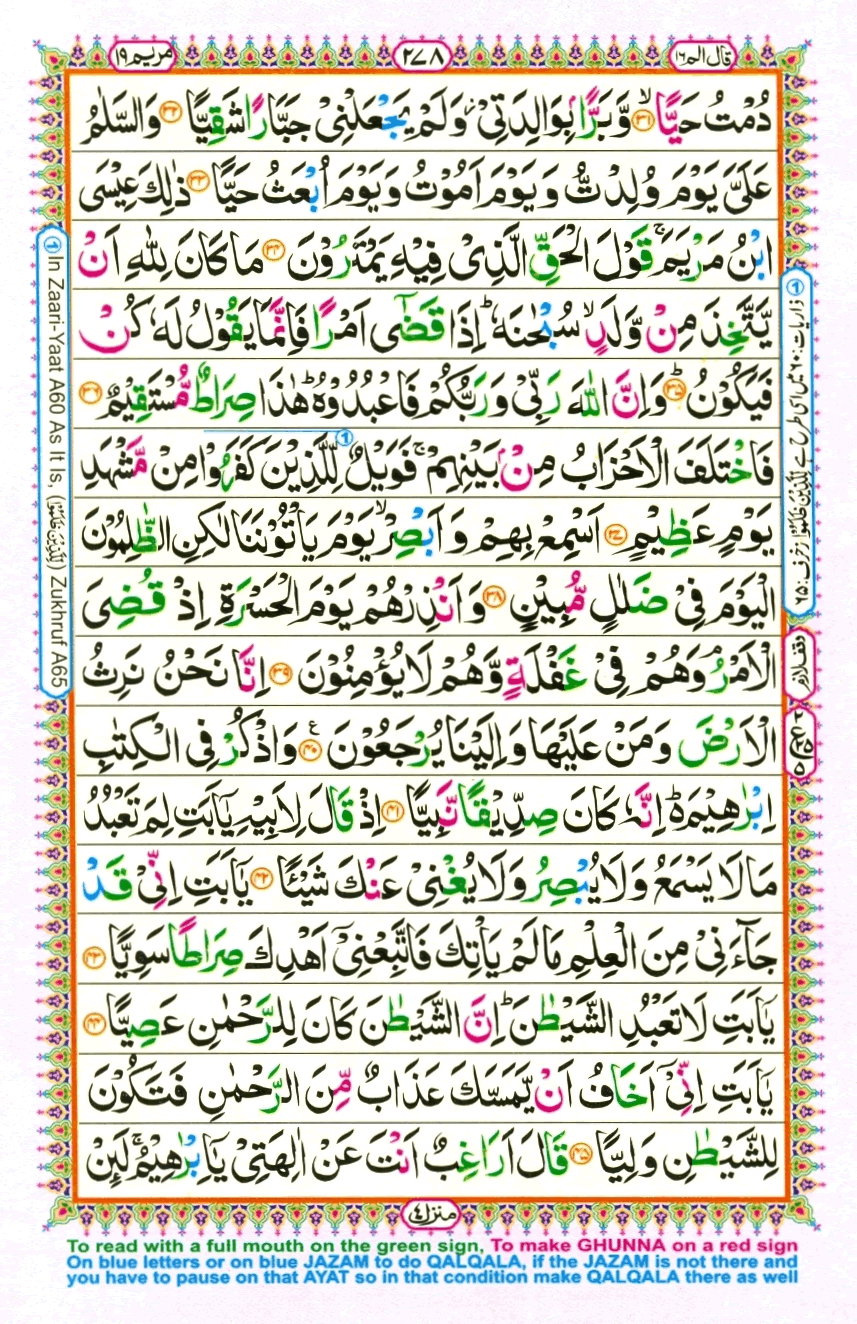 قال الم ١٦
٢٧٨
مريم ١٩
دُمْتُ حَيًّا ۙ‏﴿۳۱﴾ وَّبَرًّۢا بِوَالِدَتِیْ ز وَلَمْ یَجْعَلْنِیْ جَبَّارًا شَقِیًّا ﴿۳۲﴾ وَالسَّلٰمُ
عَلَیَّ یَوْمَ وُلِدْتُّ وَیَوْمَ اَمُوْتُ وَیَوْمَ اُبْعَثُ حَیًّا ﴿۳۳﴾ ذٰلِكَ عِیْسَی
ابْنُ مَرْیَمَ ۚ قَوْلَ الْحَقِّ الَّذِیْ فِیْهِ یَمْتَرُوْنَ ﴿۳۴﴾ مَا كَانَ لِلّٰهِ اَنْ
یَّتَّخِذَ مِنْ وَّلَدٍ ۙ سُبْحٰنَهٗ ؕ اِذَا قَضٰۤی اَمْرًا فَاِنَّمَا یَقُوْلُ لَهٗ كُنْ
فَیَكُوْنُ ؕ﴿۳۵﴾ وَاِنَّ اللّٰهَ رَبِّیْ وَرَبُّكُمْ فَاعْبُدُوْهُ ؕ هٰذَا صِرَاطٌ مُّسْتَقِیْمٌ ﴿۳۶﴾
فَاخْتَلَفَ الْاَحْزَابُ مِنْۢ بَیْنِهِمْ ۚ فَوَیْلٌ لِّلَّذِیْنَ ① كَفَرُوْا مِنْ مَّشْهَدِ
یَوْمٍ عَظِیْمٍ ﴿۳۷﴾ اَسْمِعْ بِهِمْ وَاَبْصِرْ ۙ یَوْمَ یَاْتُوْنَنَا لٰكِنِ الظّٰلِمُوْنَ
الْیَوْمَ فِیْ ضَلٰلٍ مُّبِیْنٍ ﴿۳۸﴾ وَاَنْذِرْهُمْ یَوْمَ الْحَسْرَةِ اِذْ قُضِیَ
الْاَمْرُ ۘ وَهُمْ فِیْ غَفْلَةٍ وَّهُمْ لَا یُؤْمِنُوْنَ ﴿۳۹﴾ اِنَّا نَحْنُ نَرِثُ
الْاَرْضَ وَمَنْ عَلَیْهَا وَاِلَیْنَا یُرْجَعُوْنَ ﴿۴۰﴾ ع وَاذْكُرْ فِی الْكِتٰبِ
اِبْرٰهِیْمَ ؕ۬ اِنَّهٗ كَانَ صِدِّیْقًا نَّبِیًّا ﴿۴۱﴾ اِذْ قَالَ لِاَبِیْهِ یٰۤاَبَتِ لِمَ تَعْبُدُ
مَا لَا یَسْمَعُ وَلَا یُبْصِرُ وَلَا یُغْنِیْ عَنْكَ شَیْـًٔا ﴿۴۲﴾ یٰۤاَبَتِ اِنِّیْ قَدْ
جَآءَنِیْ مِنَ الْعِلْمِ مَا لَمْ یَاْتِكَ فَاتَّبِعْنِیْۤ اَهْدِكَ صِرَاطًا سَوِیًّا ﴿۴۳﴾
یٰۤاَبَتِ لَا تَعْبُدِ الشَّیْطٰنَ ؕ اِنَّ الشَّیْطٰنَ كَانَ لِلرَّحْمٰنِ عَصِیًّا ﴿۴۴﴾
یٰۤاَبَتِ اِنِّیْۤ اَخَافُ اَنْ یَّمَسَّكَ عَذَابٌ مِّنَ الرَّحْمٰنِ فَتَكُوْنَ
لِلشَّیْطٰنِ وَلِیًّا ﴿۴۵﴾ قَالَ اَرَاغِبٌ اَنْتَ عَنْ اٰلِهَتِیْ یٰۤاِبْرٰهِیْمُ ۚ لَىِٕنْ
① ذاریات:۶۰ میں اسی طرح ہے لِلَّذِیْنَ ظَلَمُوْا زخرف:۶۵
وقف لازم
ع ۲ ۲۵ ۵
① In Zaari-Yaat A60 As It Is, (لِلَّذِیْنَ ظَلَمُوْا) Zukhruf A65
منزل ٤
To read with a full mouth on the green sign, To make GHUNNA on a red sign
On blue letters or on blue JAZAM to do QALQALA, if the JAZAM is not there and
you have to pause on that AYAT so in that condition make QALQALA there as well